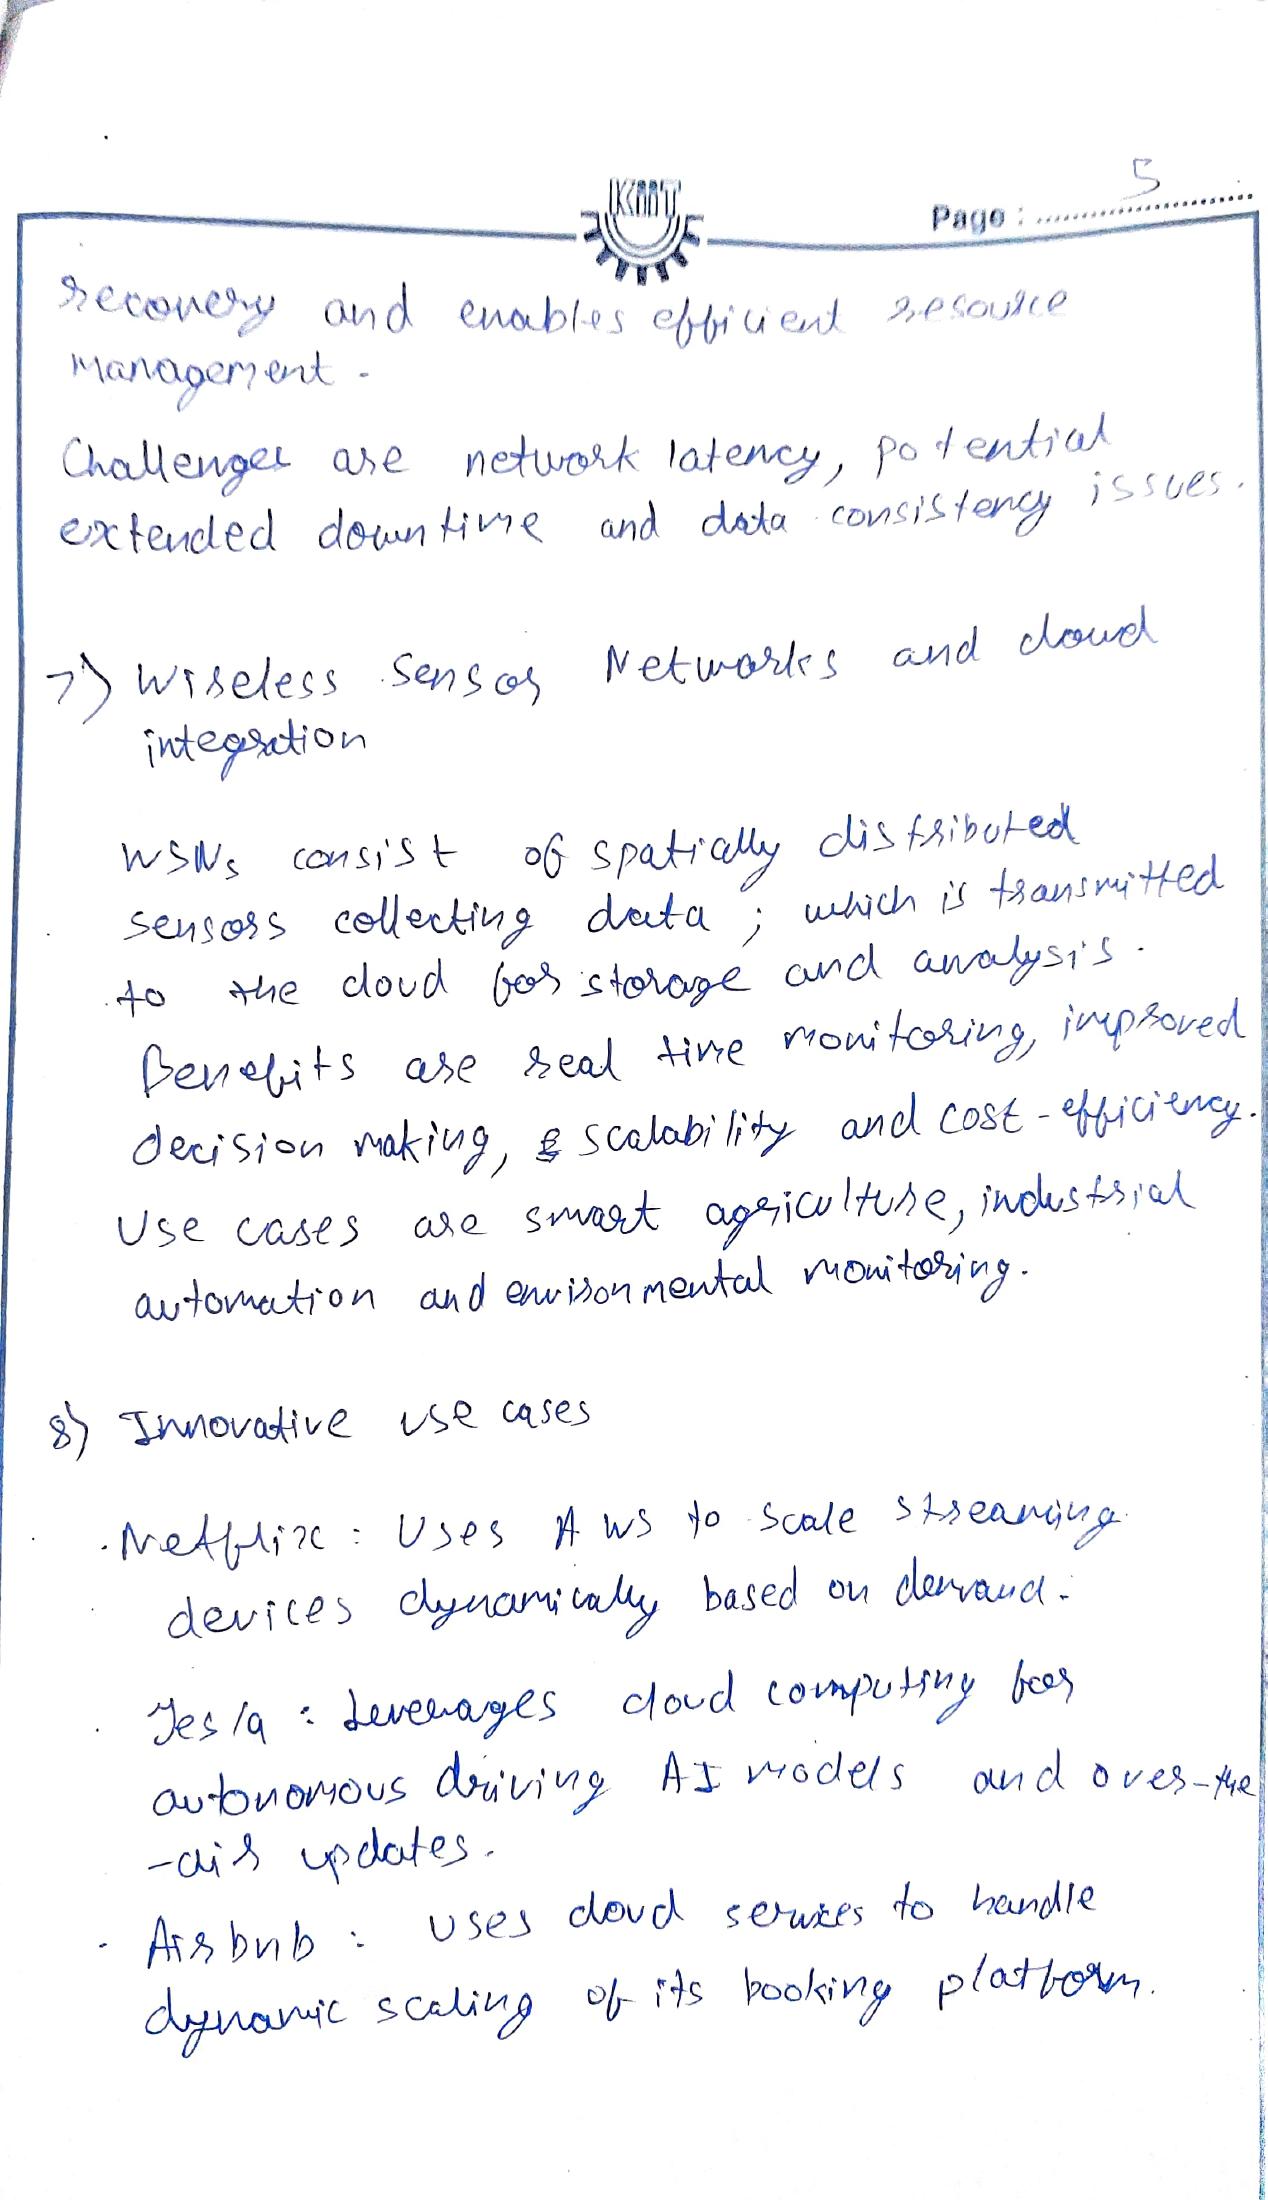 KMT
Page : 5
recovery and enables efficient resource
management.
Challenges are network latency, potential
extended downtime and data consistency issues.
7) Wireless Sensor Networks and cloud
integration
WSNs consist of spatially distributed
sensors collecting data ; which is transmitted
to the cloud for storage and analysis.
Benefits are real time monitoring, improved
decision making, scalability and cost-efficiency.
Use cases are smart agriculture, industrial
automation and environmental monitoring.
8) Innovative use cases
. Netflix : Uses AWS to scale streaming
devices dynamically based on demand.
. Tesla : Leverages cloud computing for
autonomous driving AI models and over-the
-air updates.
. Airbnb : Uses cloud services to handle
dynamic scaling of its booking platform.